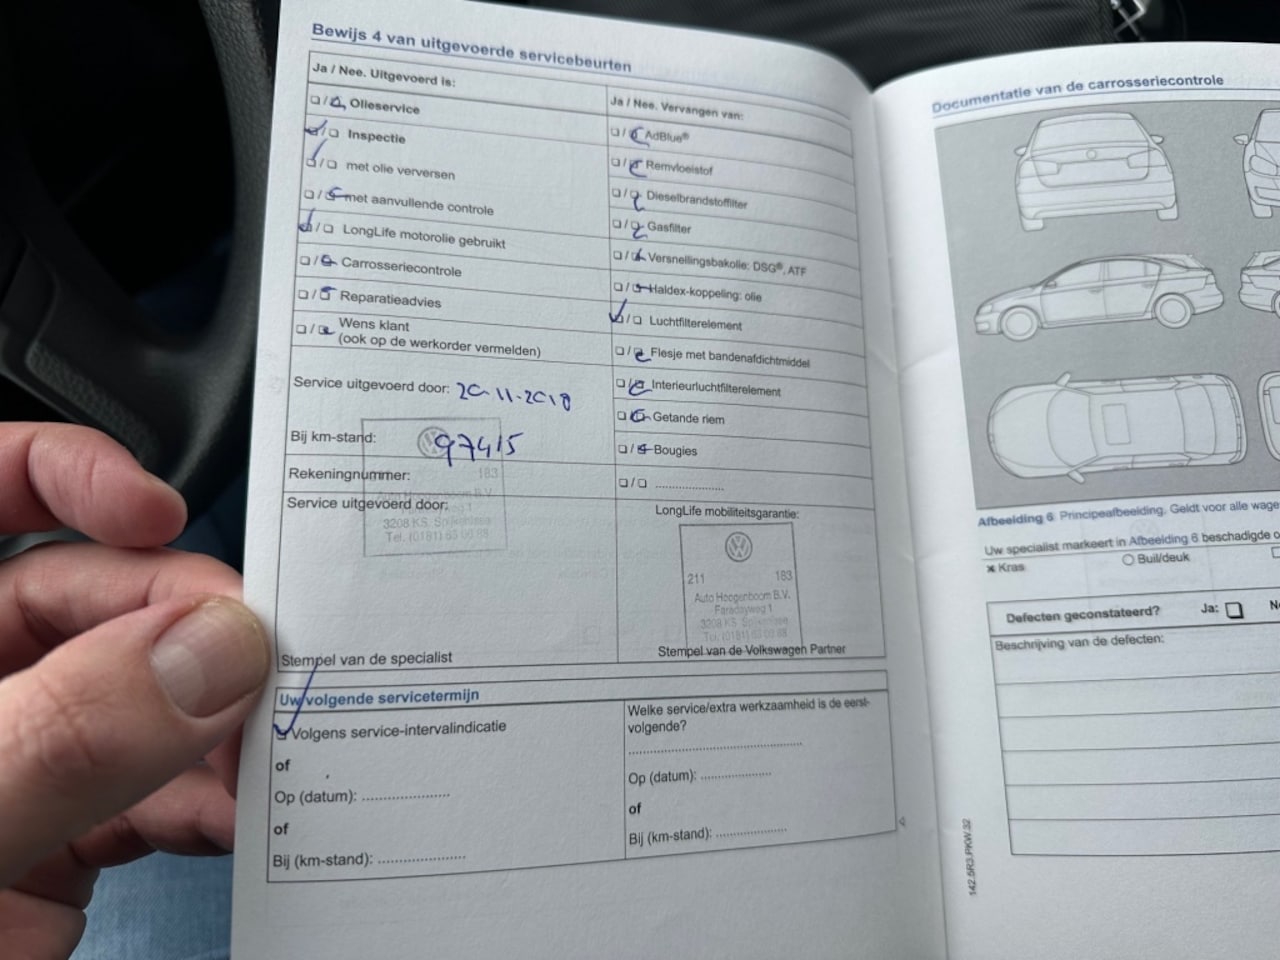 Bewijs 4 van uitgevoerde servicebeurten
Ja / Nee. Uitgevoerd is:
Olieservice
Inspectie
met olie verversen
met aanvullende controle
LongLife motorolie gebruikt
Carrosseriecontrole
Reparatieadvies
Wens klant
(ook op de werkorder vermelden)
Service uitgevoerd door: 20-11-2018
Bij km-stand: 97415
Rekeningnummer:
183
Service uitgevoerd door:
3208 KS Spijkenisse
Stempel van de specialist
Ja / Nee. Vervangen van:
AdBlue®
Remvloeistof
Dieselbrandstoffilter
Gasfilter
Versnellingsbakolie: DSG®, ATF
Haldex-koppeling: olie
Luchtfilterelement
Flesje met bandenafdichtmiddel
Interieurluchtfilterelement
Getande riem
Bougies
....................
LongLife mobiliteitsgarantie:
211 183
Auto Hoogenboom B.V.
Faradayweg 1
3208 KS Spijkenisse
Stempel van de Volkswagen Partner
Uw volgende servicetermijn
Volgens service-intervalindicatie
of
Op (datum): ....................
of
Bij (km-stand): ....................
Welke service/extra werkzaamheid is de eerst-
volgende?
........................................
Op (datum): ................
of
Bij (km-stand): ................
142.5R3.PKW.32
Documentatie van de carrosseriecontrole
Afbeelding 6 Principeafbeelding. Geldt voor alle wage
Uw specialist markeert in Afbeelding 6 beschadigde o
Kras
Buil/deuk
Defecten geconstateerd? Ja: N
Beschrijving van de defecten: